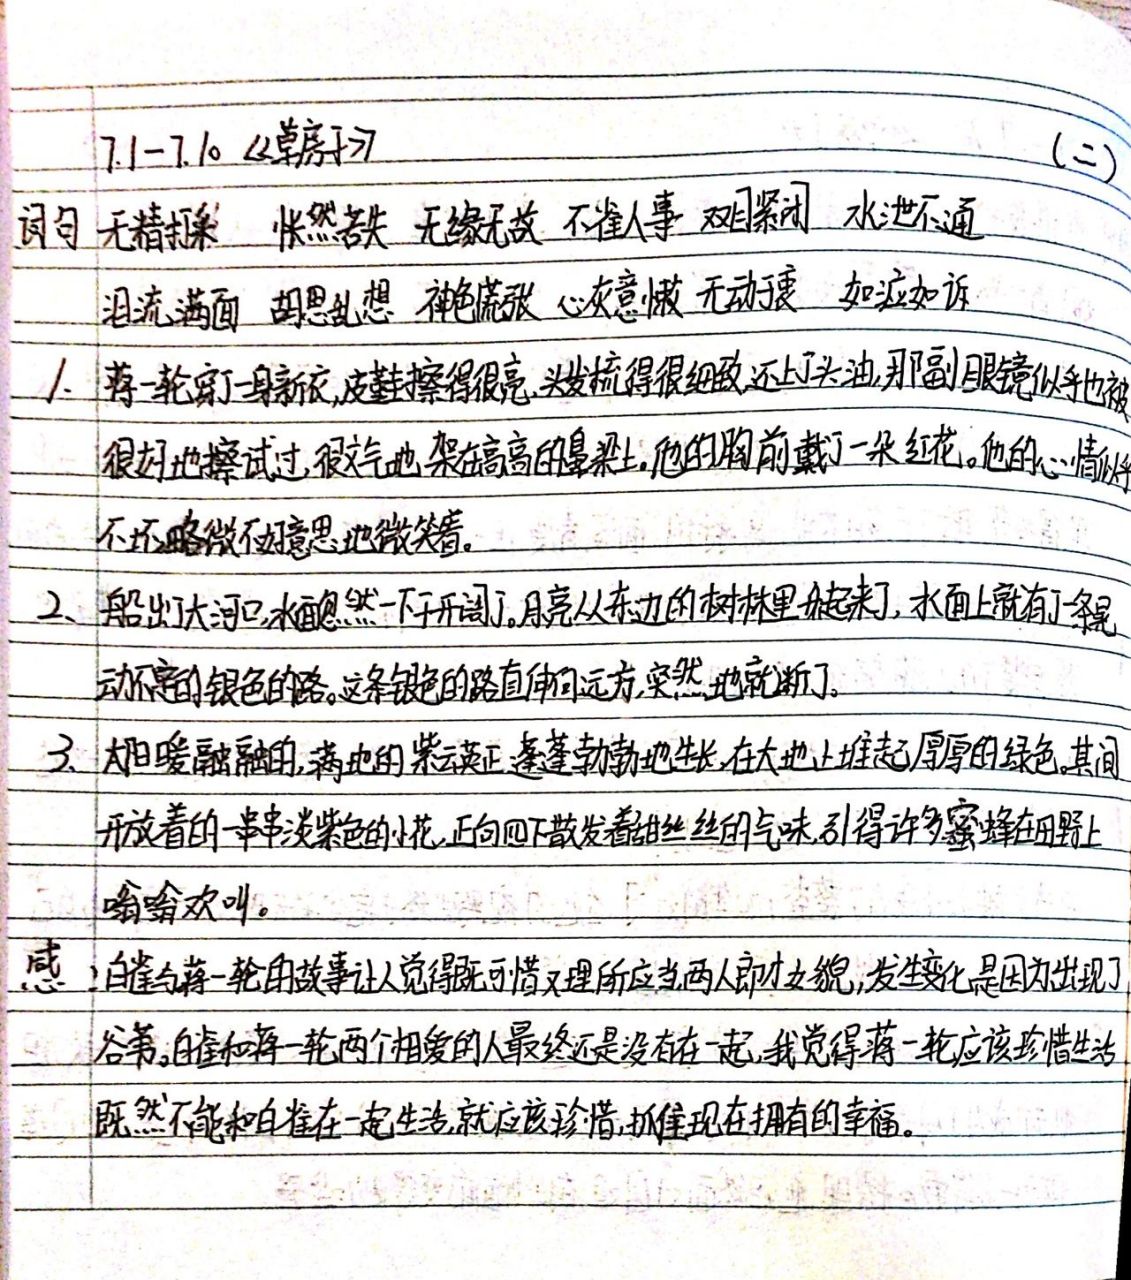 7.1-7.10 《草房子》 (二)
词句 无精打采 怅然若失 无缘无故 不省人事 双目紧闭 水泄不通
泪流满面 胡思乱想 神色慌张 心灰意懒 无动于衷 如泣如诉
1. 蒋一轮穿了一身新衣,皮鞋擦得很亮,头发梳得很细致,还上了头油,那副眼镜似乎也被
很好地擦试过,很文气地架在高高的鼻梁上。他的胸前戴了一朵红花。他的心情似乎
不坏,略微不好意思地微笑着。
2、船出了大河口,水面忽然一下子开阔了。月亮从东边的树林里升起来了,水面上就有了一条晃
动不定的银色的路。这条银色的路直伸向远方,突然地就断了。
3、太阳暖融融的,满地的紫云英正蓬蓬勃勃地生长,在大地上堆起厚厚的绿色。其间
开放着的一串串淡紫色的小花,正向四下散发着甜丝丝的气味,引得许多蜜蜂在田野上
嗡嗡欢叫。
感:白雀与蒋一轮的故事让人觉得既可惜又理所应当,两人郎才女貌,发生变化是因为出现了
谷苇。白雀和蒋一轮两个相爱的人最终还是没有在一起,我觉得蒋一轮应该珍惜生活
既然不能和白雀在一起生活,就应该珍惜,抓住现在拥有的幸福。